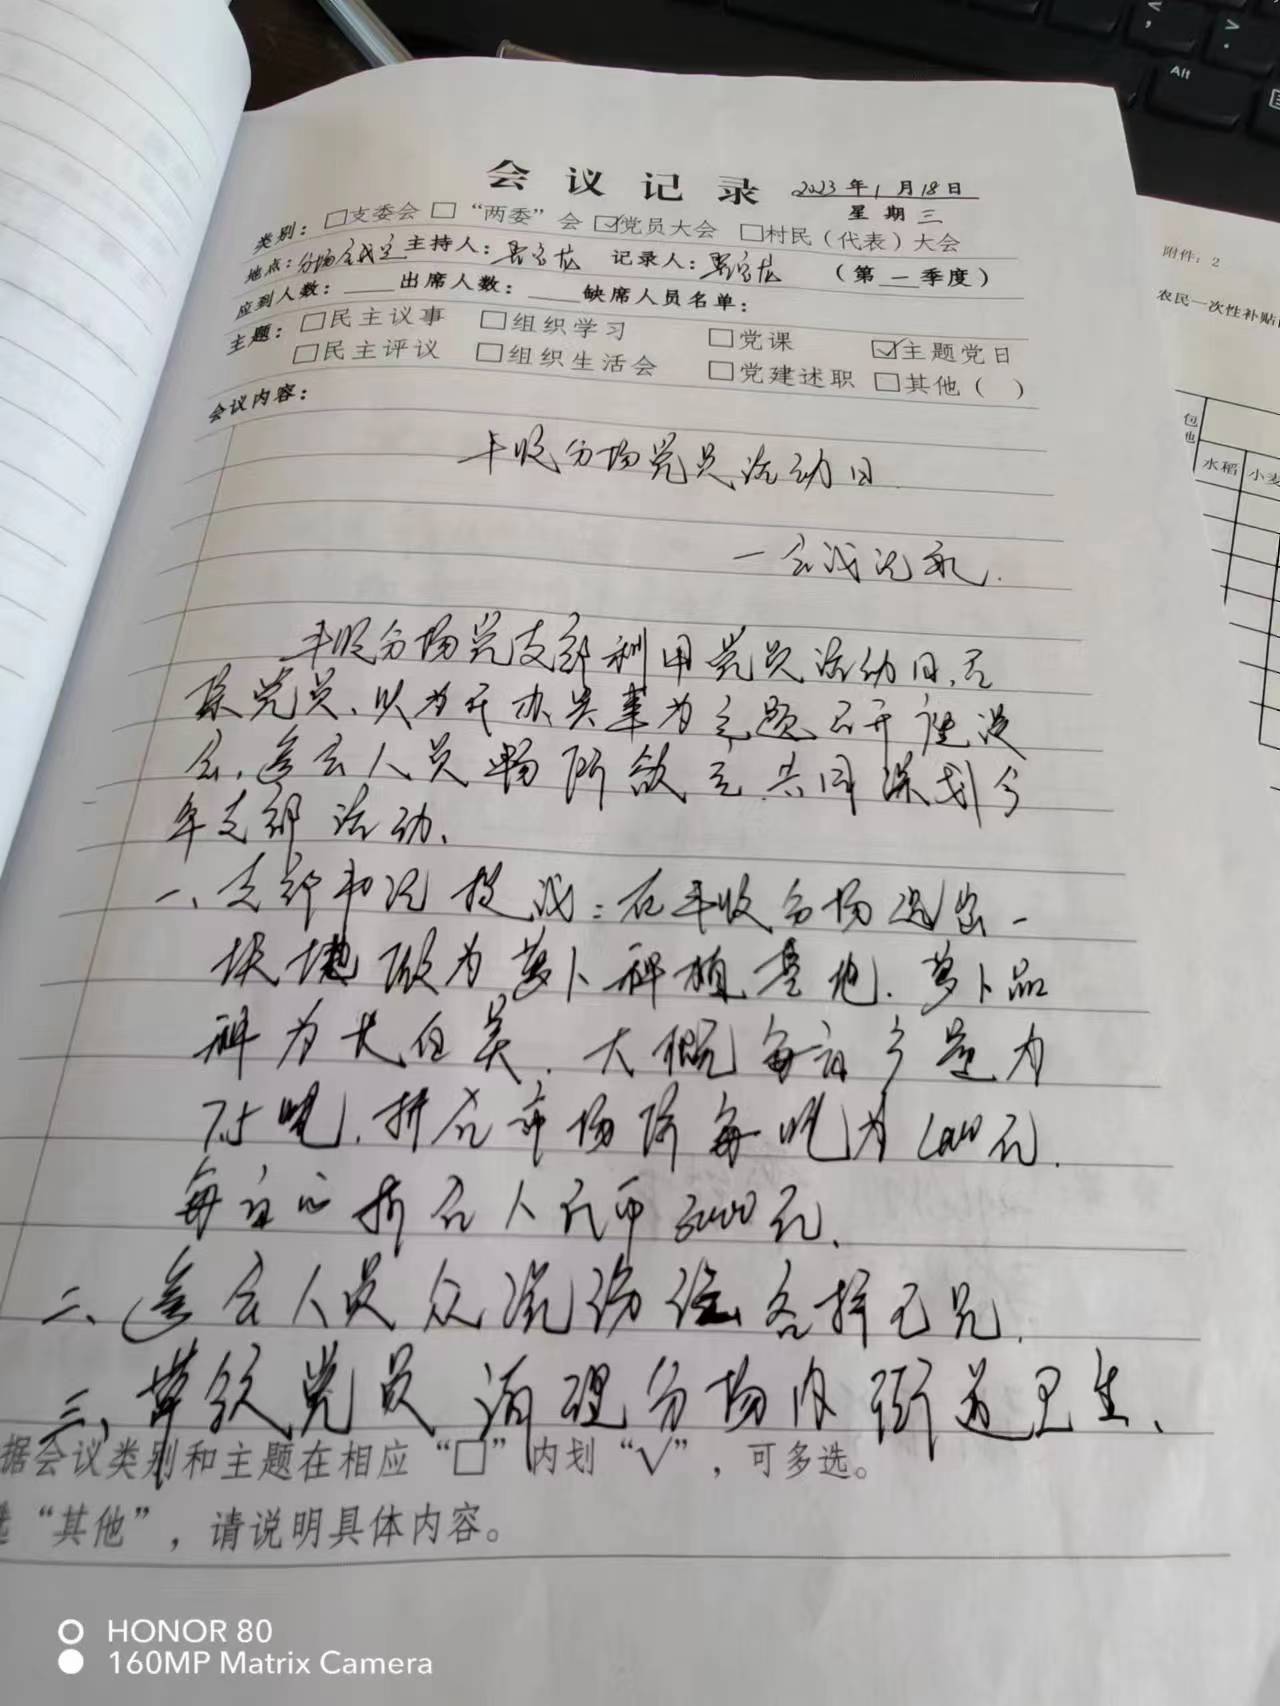 会议记录 2023年1月18日
星期三
类别：□支委会 □“两委”会 ☑党员大会 □村民（代表）大会
地点：分场会议室 主持人： 记录人： （第一季度）
应到人数：____出席人数：____缺席人员名单：
主题：□民主议事 □组织学习 □党课 ☑主题党日
□民主评议 □组织生活会 □党建述职 □其他（ ）
会议内容：
丰收分场党员活动日
一会议记录.
丰收分场党支部利用党员活动日,召
集党员、以为民办实事为主题召开座谈
会,参会人员畅所欲言.共同谋划今
年支部活动、
一、支部书记提议：在丰收分场选出一
块地做为萝卜种植基地.萝卜品
种为大白美.大概每亩产量为
7.5吨.折合市场价每吨为 元.
每亩 折合人民币 元.
二、参会人员众说纷纭各抒己见.
三、带领党员清理分场内街道卫生、
据会议类别和主题在相应“□”内划“√”，可多选。
选“其他”，请说明具体内容。
附件：2
农民一次性补贴
包
水稻 小麦
Alt
HONOR 80
160MP Matrix Camera